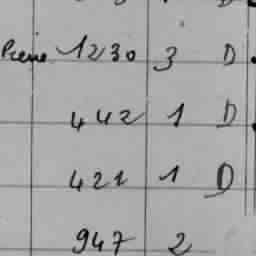 1230 3 D
442 1 D
421 1 D
947 2